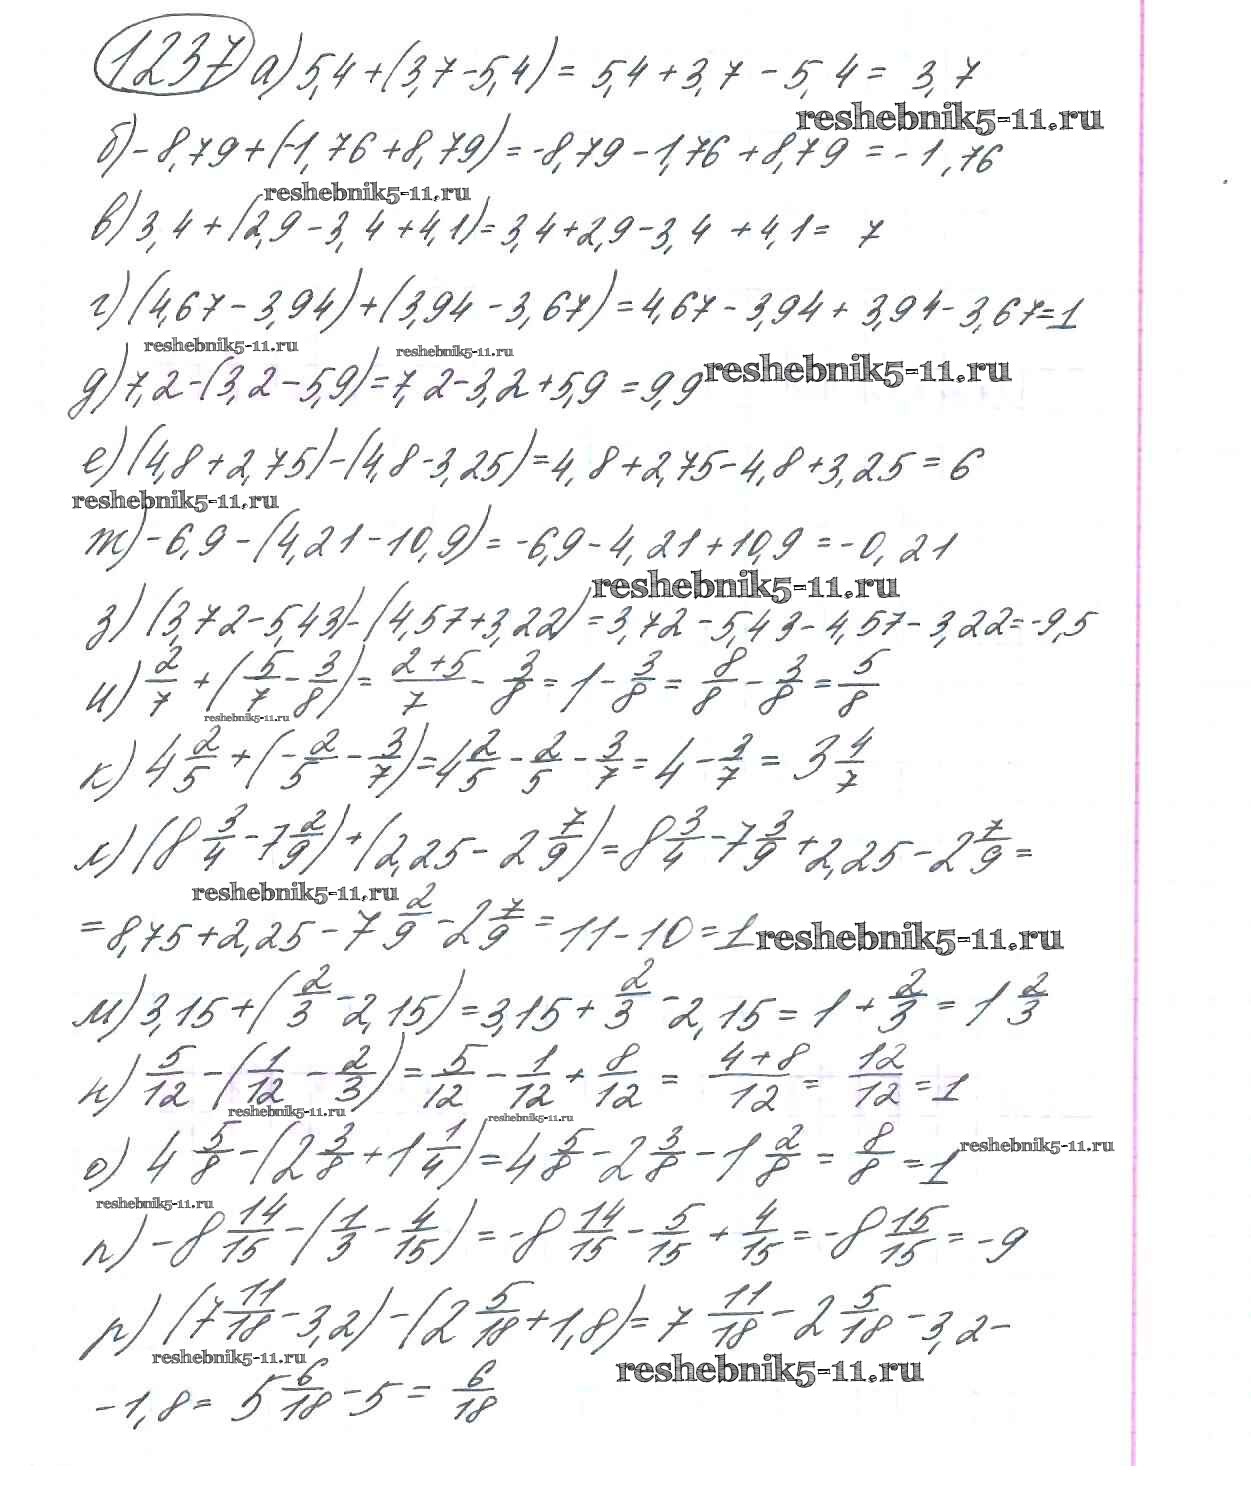 1237 а) 5,4 + (3,7 - 5,4) = 5,4 + 3,7 - 5,4 = 3,7
reshebnik5-11.ru
б) - 8,79 + (-1,76 + 8,79) = -8,79 - 1,76 + 8,79 = -1,76
reshebnik5-11.ru
в) 3,4 + (2,9 - 3,4 + 4,1) = 3,4 + 2,9 - 3,4 + 4,1 = 7
г) (4,67 - 3,94) + (3,94 - 3,67) = 4,67 - 3,94 + 3,94 - 3,67 = 1
reshebnik5-11.ru reshebnik5-11.ru
д) 7,2 - (3,2 - 5,9) = 7,2 - 3,2 + 5,9 = 9,9 reshebnik5-11.ru
е) (4,8 + 2,75) - (4,8 - 3,25) = 4,8 + 2,75 - 4,8 + 3,25 = 6
reshebnik5-11.ru
ж) - 6,9 - (4,21 - 10,9) = -6,9 - 4,21 + 10,9 = -0,21
reshebnik5-11.ru
з) (3,72 - 5,43) - (4,57 + 3,22) = 3,72 - 5,43 - 4,57 - 3,22 = -9,5
и) 2/7 + (5/7 - 3/8) = (2+5)/7 - 3/8 = 1 - 3/8 = 8/8 - 3/8 = 5/8
reshebnik5-11.ru
к) 4 2/5 + (- 2/5 - 3/7) = 4 2/5 - 2/5 - 3/7 = 4 - 3/7 = 3 4/7
л) (8 3/4 - 7 2/9) + (2,25 - 2 7/9) = 8 3/4 - 7 3/9 + 2,25 - 2 7/9 =
reshebnik5-11.ru
= 8,75 + 2,25 - 7 2/9 - 2 7/9 = 11 - 10 = 1 reshebnik5-11.ru
м) 3,15 + (2/3 - 2,15) = 3,15 + 2/3 - 2,15 = 1 + 2/3 = 1 2/3
н) 5/12 - (1/12 - 2/3) = 5/12 - 1/12 + 8/12 = (4+8)/12 = 12/12 = 1
reshebnik5-11.ru reshebnik5-11.ru
о) 4 5/8 - (2 3/8 + 1 1/4) = 4 5/8 - 2 3/8 - 1 2/8 = 8/8 = 1 reshebnik5-11.ru
reshebnik5-11.ru
п) - 8 14/15 - (1/3 - 4/15) = -8 14/15 - 5/15 + 4/15 = -8 15/15 = -9
р) (7 11/18 - 3,2) - (2 5/18 + 1,8) = 7 11/18 - 2 5/18 - 3,2 -
reshebnik5-11.ru reshebnik5-11.ru
- 1,8 = 5 6/18 - 5 = 6/18